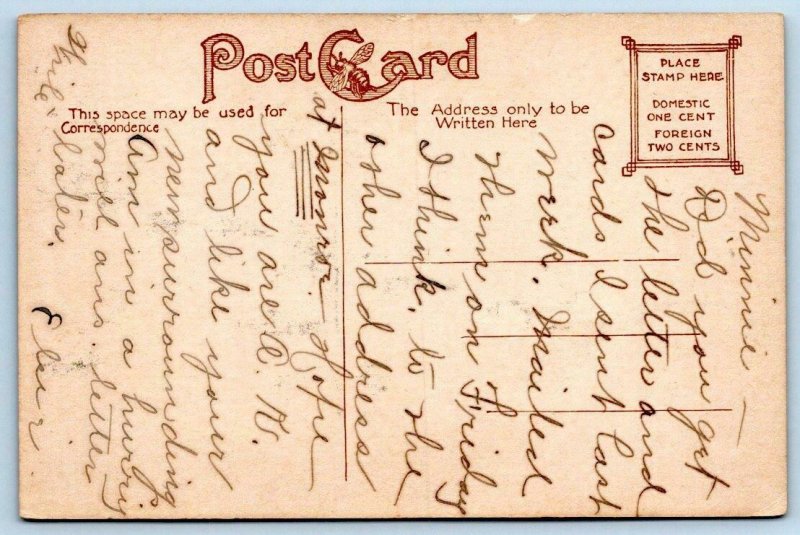 Post Card
This space may be used for
Correspondence
The Address only to be
Written Here
PLACE
STAMP HERE
DOMESTIC
ONE CENT
FOREIGN
TWO CENTS
Minnie —
Did you get
the letter and
cards I sent last
week. Mailed
them on Friday
I think, to the
other address
at Monroe. Hope
you are O.K.
and like your
new surrounding
Am in a hurry
will ans. letter
later.